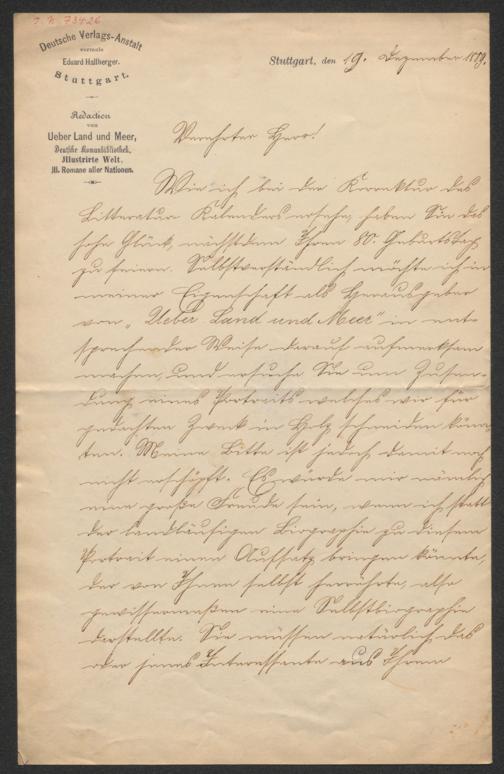 I. N. 73426
Deutsche Verlags-Anstalt
vormals
Eduard Hallberger.
Stuttgart.
Stuttgart, den 19. Dezember 1889.
Redaction
von
Ueber Land und Meer,
Deutsche Romanbibliothek,
Illustrirte Welt.
Ill. Romane aller Nationen.
Verehrter Herr!
Wie ich bei der Korrektur des
Litteratur Kalenders ersehe, haben Sie das
hohe Glück, nächstdem Ihren 80. Geburtstag
zu feiern. Selbstverständlich möchte ich in
meiner Eigenschaft als Herausgeber
von „Ueber Land und Meer" in ent-
sprechender Weise darauf aufmerksam
machen, und ersuche Sie um Zusen-
dung eines Portraits welches wir für
gedachten Zweck in Holz schneiden könn-
ten. Meine Bitte ist jedoch damit noch
nicht erschöpft. Es würde mir nämlich
eine große Freude sein, wenn ich statt
der landläufigen Biographie zu diesem
Portrait einen Aufsatz bringen könnte,
der von Ihnen selbst herrührte, also
gewissermaßen eine Selbstbiographie
darstellte. Sie müssen natürlich das
oder jenes Interessante aus Ihrem